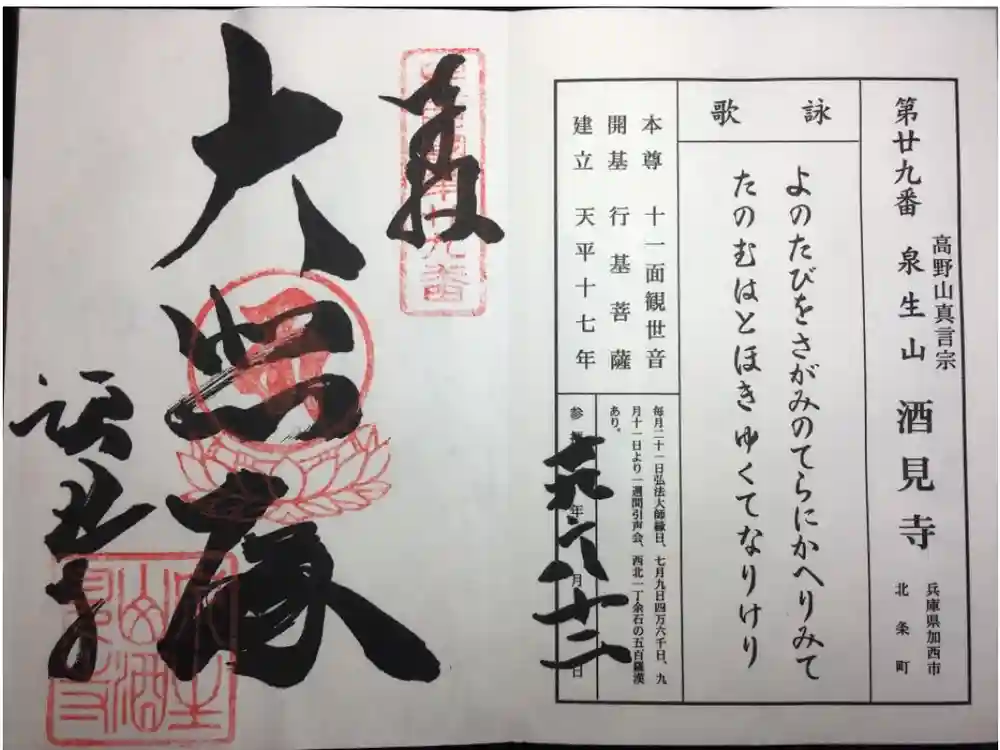 第廿九番
高野山真言宗
泉生山 酒見寺
兵庫県加西市
北条町
詠歌
よのたびをさがみのてらにかへりみて
たのむはとほきゆくてなりけり
本尊 十一面観世音
開基 行基菩薩
建立 天平十七年
毎月二十一日弘法大師縁日、七月九日四万六千日、九
月十一日より一週間引声会、西北一丁余石の五百羅漢
あり。
年 月 日
十二
奉拝
酒見寺